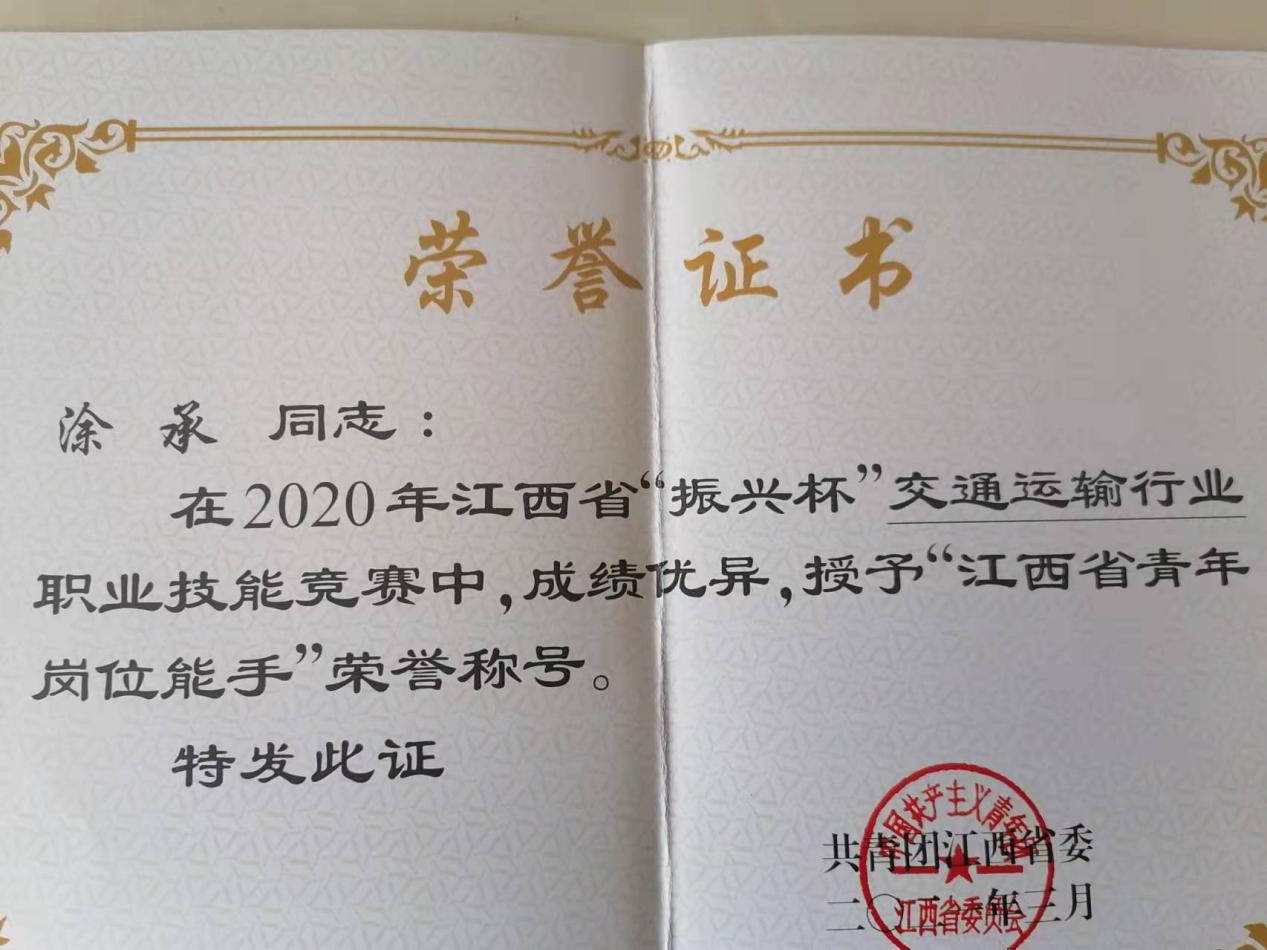 荣誉证书
涂承 同志：
在2020年江西省“振兴杯”交通运输行业
职业技能竞赛中，成绩优异，授予“江西省青年
岗位能手”荣誉称号。
特发此证
中国共产主义青年团
共青团江西省委
二〇二一年三月
江西省委员会